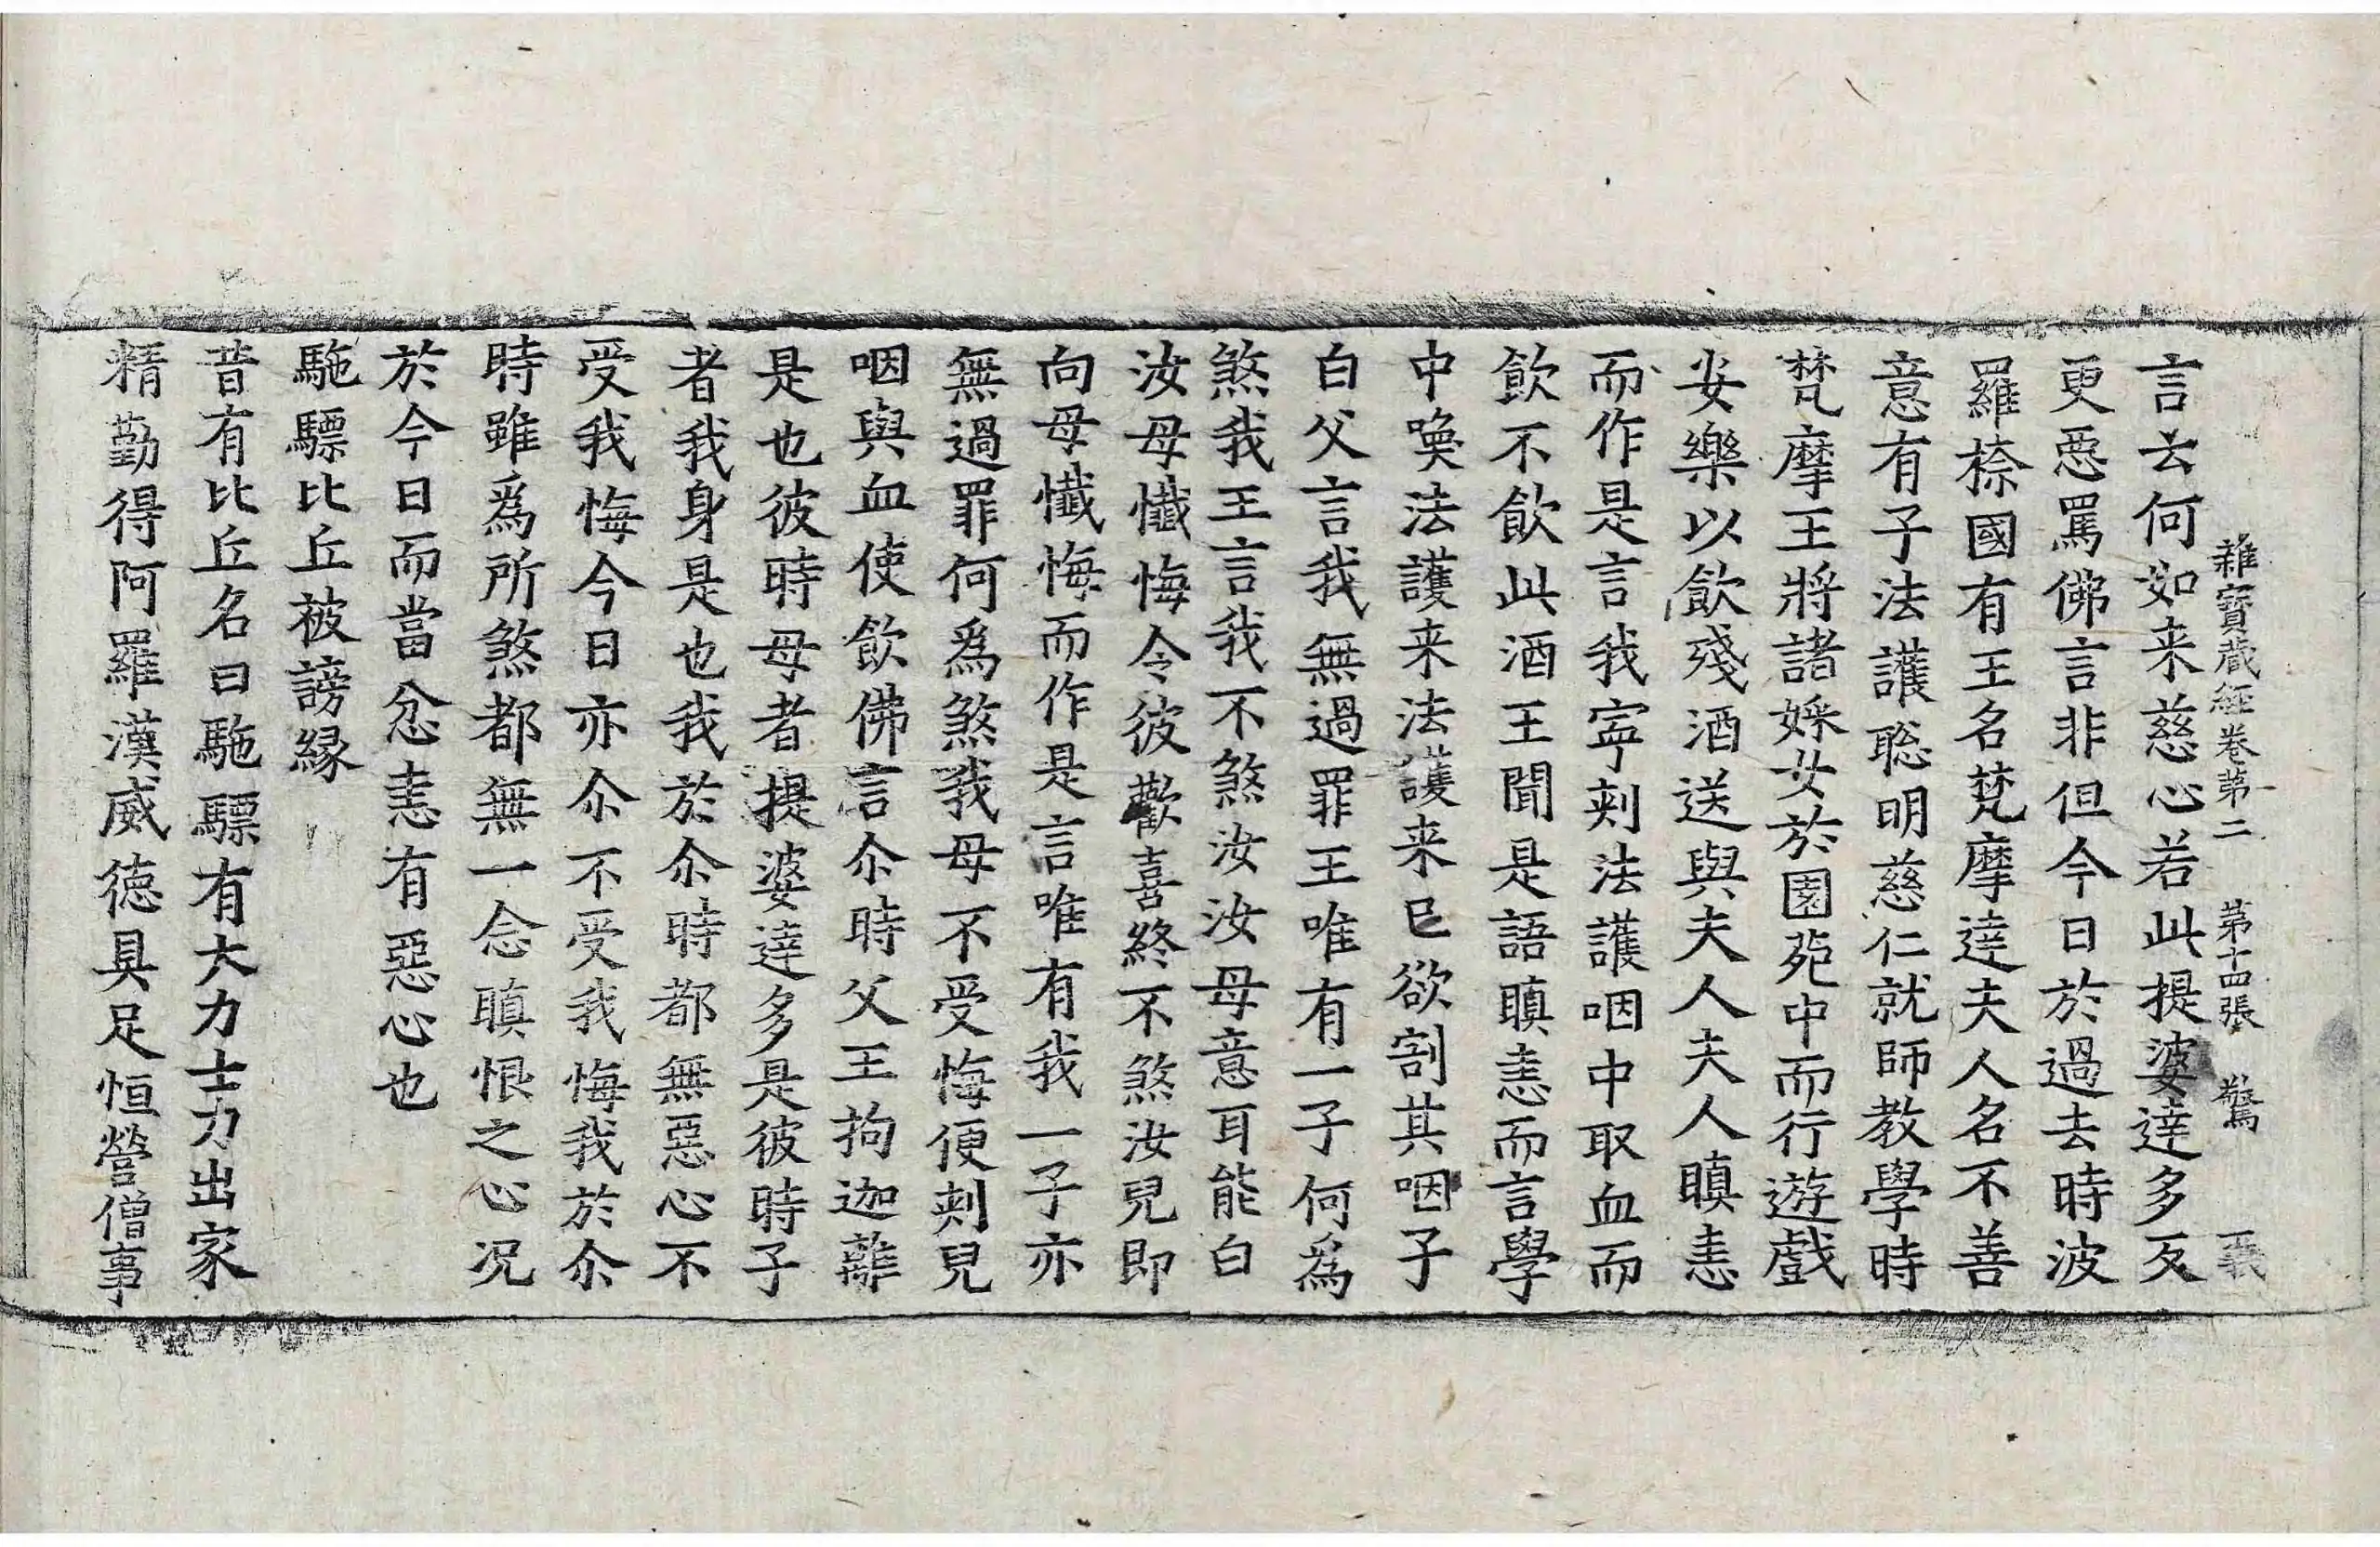 雜寶藏經卷第二 第十四張 驚
言去何如来慈心若此提婆達多反
更惡罵佛言非但今日於過去時波
羅㮈國有王名梵摩達夫人名不善
意有子法護聡明慈仁就師教學時
梵摩王將諸婇女於園苑中而行遊戲
安樂以飲殘酒送與夫人夫人瞋恚
而作是言我寧刾法護咽中取血而
飲不飲此酒王聞是語瞋恚而言學
中喚法護来法護来已欲割其咽子
白父言我無過罪王唯有一子何爲
煞我王言我不煞汝汝母意耳能白
汝母懺悔令彼歡喜終不煞汝兒即
向母懺悔而作是言唯有我一子亦
無過罪何爲煞我母不受悔便刾兒
咽與血使飲佛言尒時父王拘迦離
是也彼時母者提婆達多是彼時子
者我身是也我於尒時都無惡心不
受我悔今日亦尒不受我悔我於尒
時雖爲所煞都無一念瞋恨之心况
於今日而當忿恚有惡心也
駞驃比丘被謗縁
昔有比丘名曰駞驃有大力士力出家
精勤得阿羅漢威德具足恒營僧事